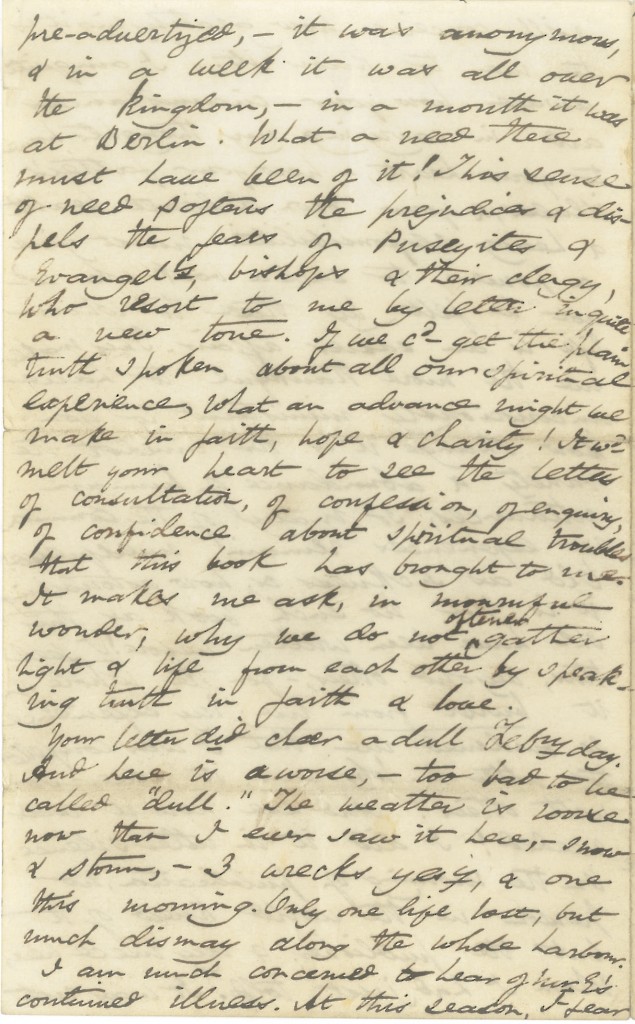 pre-advertized, – it was anonymous,
& in a week it was all over
the kingdom, – in a month it was
at Berlin. What a need there
must have been of it! This sense
of need softens the prejudices & dis-
pels the fears of Puseyites &
Evangel's, bishops & their clergy,
who resort to me by letter in quite
a new tone. If we cd. get the plain
truth spoken about all our spiritual
experience, what an advance might we
make in faith, hope & charity! It wd.
melt your heart to see the letters
of consultation, of confession, of enquiry,
of confidence about spiritual troubles
that this book has brought to me.
It makes me ask, in mournful
wonder, why we do not oftener gather
light & life from each other by speak-
ing truth in faith & love.
Your letter did cheer a dull Febry day.
And here is a worse, – too bad to be
called "dull." The weather is worse
now than I ever saw it here, – snow
& storm, – 3 wrecks yesy, & one
this morning. Only one life lost, but
much dismay along the whole harbour.
I am much concerned to hear of Mr. E's
continued illness. At this season, I fear